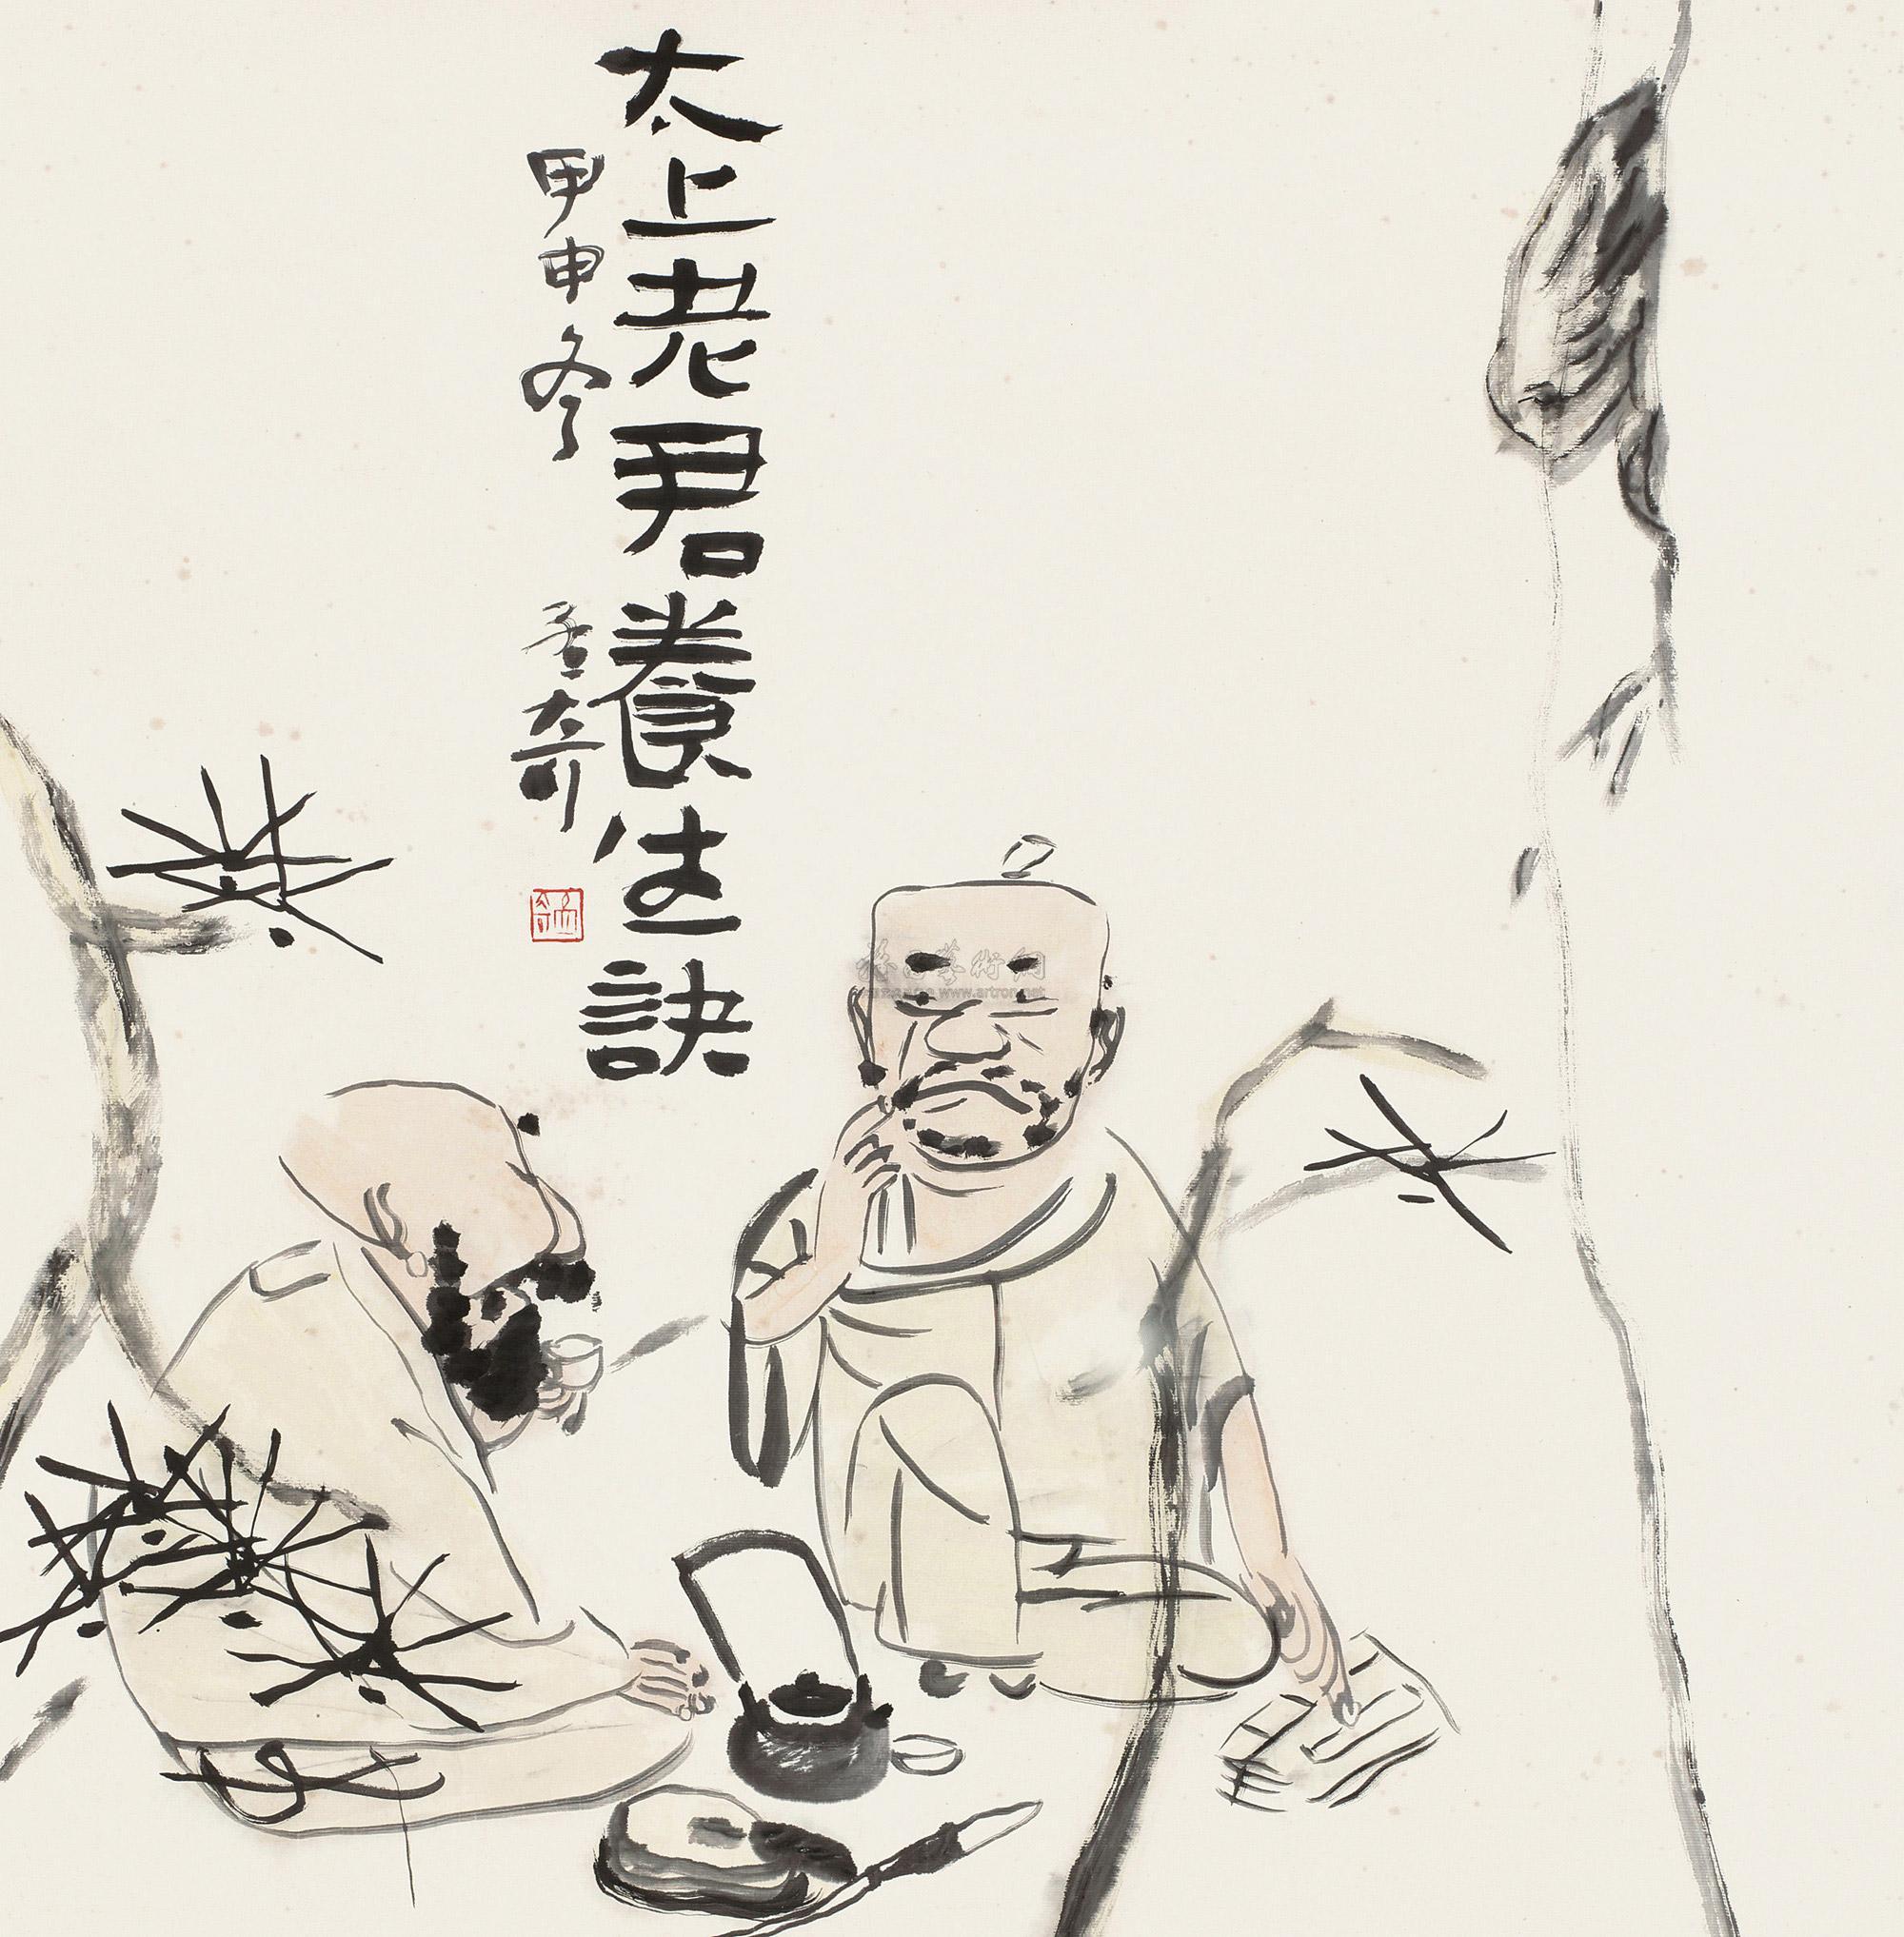 太上老君養生訣
甲申冬 孟奇
雅昌藝術網
www.artron.net